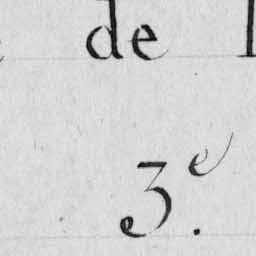 de
3e.